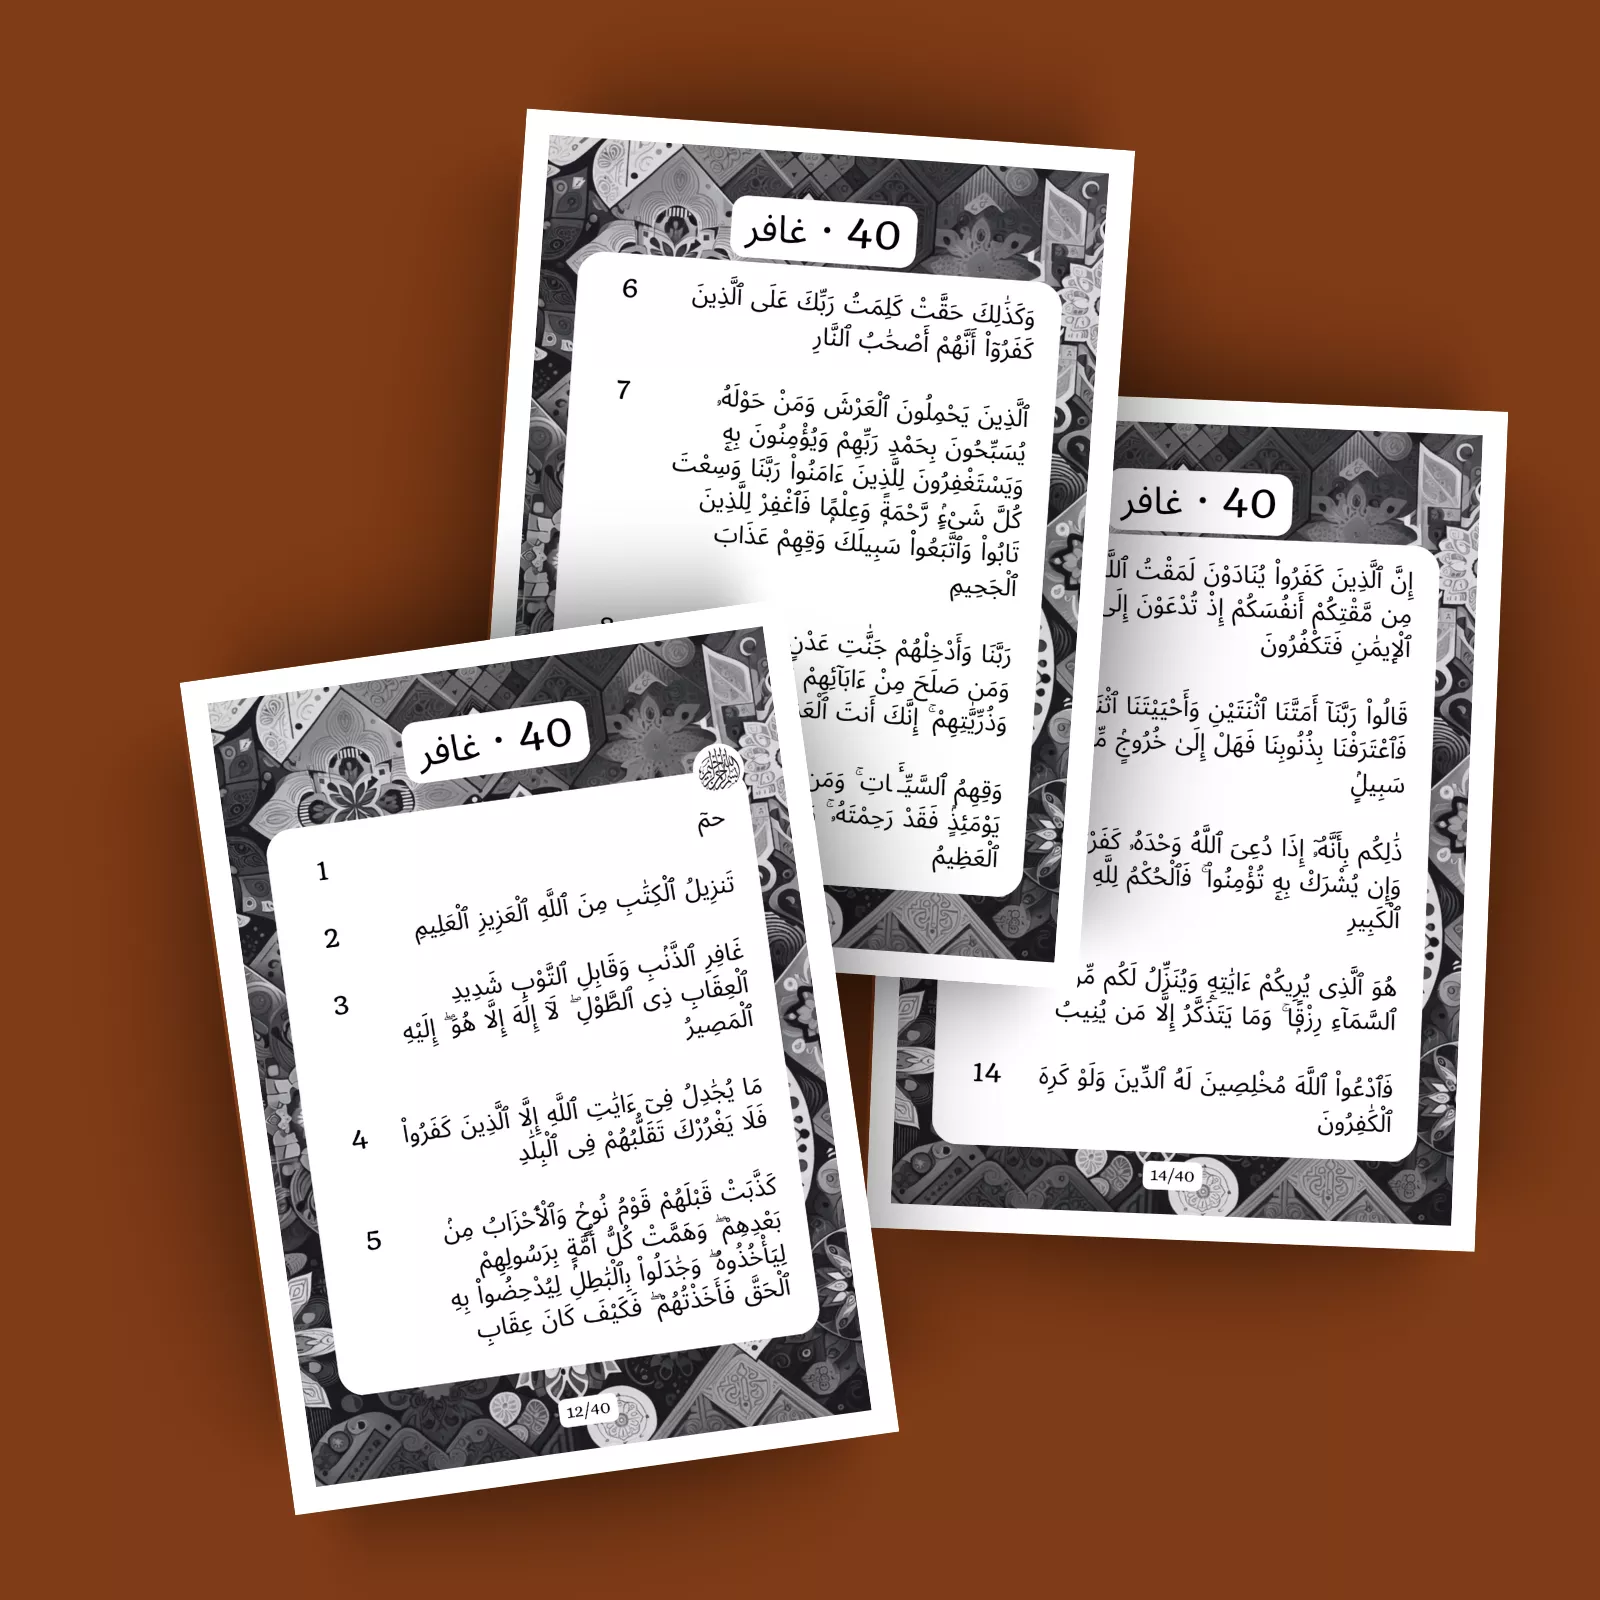 40 · غافر
حمٓ
1
تَنزِيلُ ٱلْكِتَٰبِ مِنَ ٱللَّهِ ٱلْعَزِيزِ ٱلْعَلِيمِ
2
غَافِرِ ٱلذَّنۢبِ وَقَابِلِ ٱلتَّوْبِ شَدِيدِ
3
ٱلْعِقَابِ ذِى ٱلطَّوْلِ ۖ لَآ إِلَٰهَ إِلَّا هُوَ ۖ إِلَيْهِ
ٱلْمَصِيرُ
مَا يُجَٰدِلُ فِىٓ ءَايَٰتِ ٱللَّهِ إِلَّا ٱلَّذِينَ كَفَرُوا۟
4
فَلَا يَغْرُرْكَ تَقَلُّبُهُمْ فِى ٱلْبِلَٰدِ
كَذَّبَتْ قَبْلَهُمْ قَوْمُ نُوحٍۢ وَٱلْأَحْزَابُ مِنۢ
5
بَعْدِهِمْ ۖ وَهَمَّتْ كُلُّ أُمَّةٍۭ بِرَسُولِهِمْ
لِيَأْخُذُوهُ ۖ وَجَٰدَلُوا۟ بِٱلْبَٰطِلِ لِيُدْحِضُوا۟ بِهِ
ٱلْحَقَّ فَأَخَذْتُهُمْ ۖ فَكَيْفَ كَانَ عِقَابِ
12/40
40 · غافر
6
وَكَذَٰلِكَ حَقَّتْ كَلِمَتُ رَبِّكَ عَلَى ٱلَّذِينَ
كَفَرُوٓا۟ أَنَّهُمْ أَصْحَٰبُ ٱلنَّارِ
7
ٱلَّذِينَ يَحْمِلُونَ ٱلْعَرْشَ وَمَنْ حَوْلَهُۥ
يُسَبِّحُونَ بِحَمْدِ رَبِّهِمْ وَيُؤْمِنُونَ بِهِۦ
وَيَسْتَغْفِرُونَ لِلَّذِينَ ءَامَنُوا۟ رَبَّنَا وَسِعْتَ
كُلَّ شَىْءٍۢ رَّحْمَةًۭ وَعِلْمًۭا فَٱغْفِرْ لِلَّذِينَ
تَابُوا۟ وَٱتَّبَعُوا۟ سَبِيلَكَ وَقِهِمْ عَذَابَ
ٱلْجَحِيمِ
رَبَّنَا وَأَدْخِلْهُمْ جَنَّٰتِ عَدْنٍ
وَمَن صَلَحَ مِنْ ءَابَآئِهِمْ
وَذُرِّيَّٰتِهِمْ ۚ إِنَّكَ أَنتَ
وَقِهِمُ ٱلسَّيِّـَٔاتِ ۚ وَمَن
يَوْمَئِذٍۢ فَقَدْ رَحِمْتَهُۥ ۚ
ٱلْعَظِيمُ
40 · غافر
إِنَّ ٱلَّذِينَ كَفَرُوا۟ يُنَادَوْنَ لَمَقْتُ
مِن مَّقْتِكُمْ أَنفُسَكُمْ إِذْ تُدْعَوْنَ إِلَى
ٱلْإِيمَٰنِ فَتَكْفُرُونَ
قَالُوا۟ رَبَّنَآ أَمَتَّنَا ٱثْنَتَيْنِ وَأَحْيَيْتَنَا
فَٱعْتَرَفْنَا بِذُنُوبِنَا فَهَلْ إِلَىٰ خُرُوجٍۢ
سَبِيلٍۢ
ذَٰلِكُم بِأَنَّهُۥٓ إِذَا دُعِىَ ٱللَّهُ وَحْدَهُۥ
وَإِن يُشْرَكْ بِهِۦ تُؤْمِنُوا۟ ۚ فَٱلْحُكْمُ لِلَّهِ
ٱلْكَبِيرِ
هُوَ ٱلَّذِى يُرِيكُمْ ءَايَٰتِهِۦ وَيُنَزِّلُ لَكُم
ٱلسَّمَآءِ رِزْقًۭا ۚ وَمَا يَتَذَكَّرُ إِلَّا مَن يُنِيبُ
14
فَٱدْعُوا۟ ٱللَّهَ مُخْلِصِينَ لَهُ ٱلدِّينَ وَلَوْ كَرِهَ
ٱلْكَٰفِرُونَ
14/40